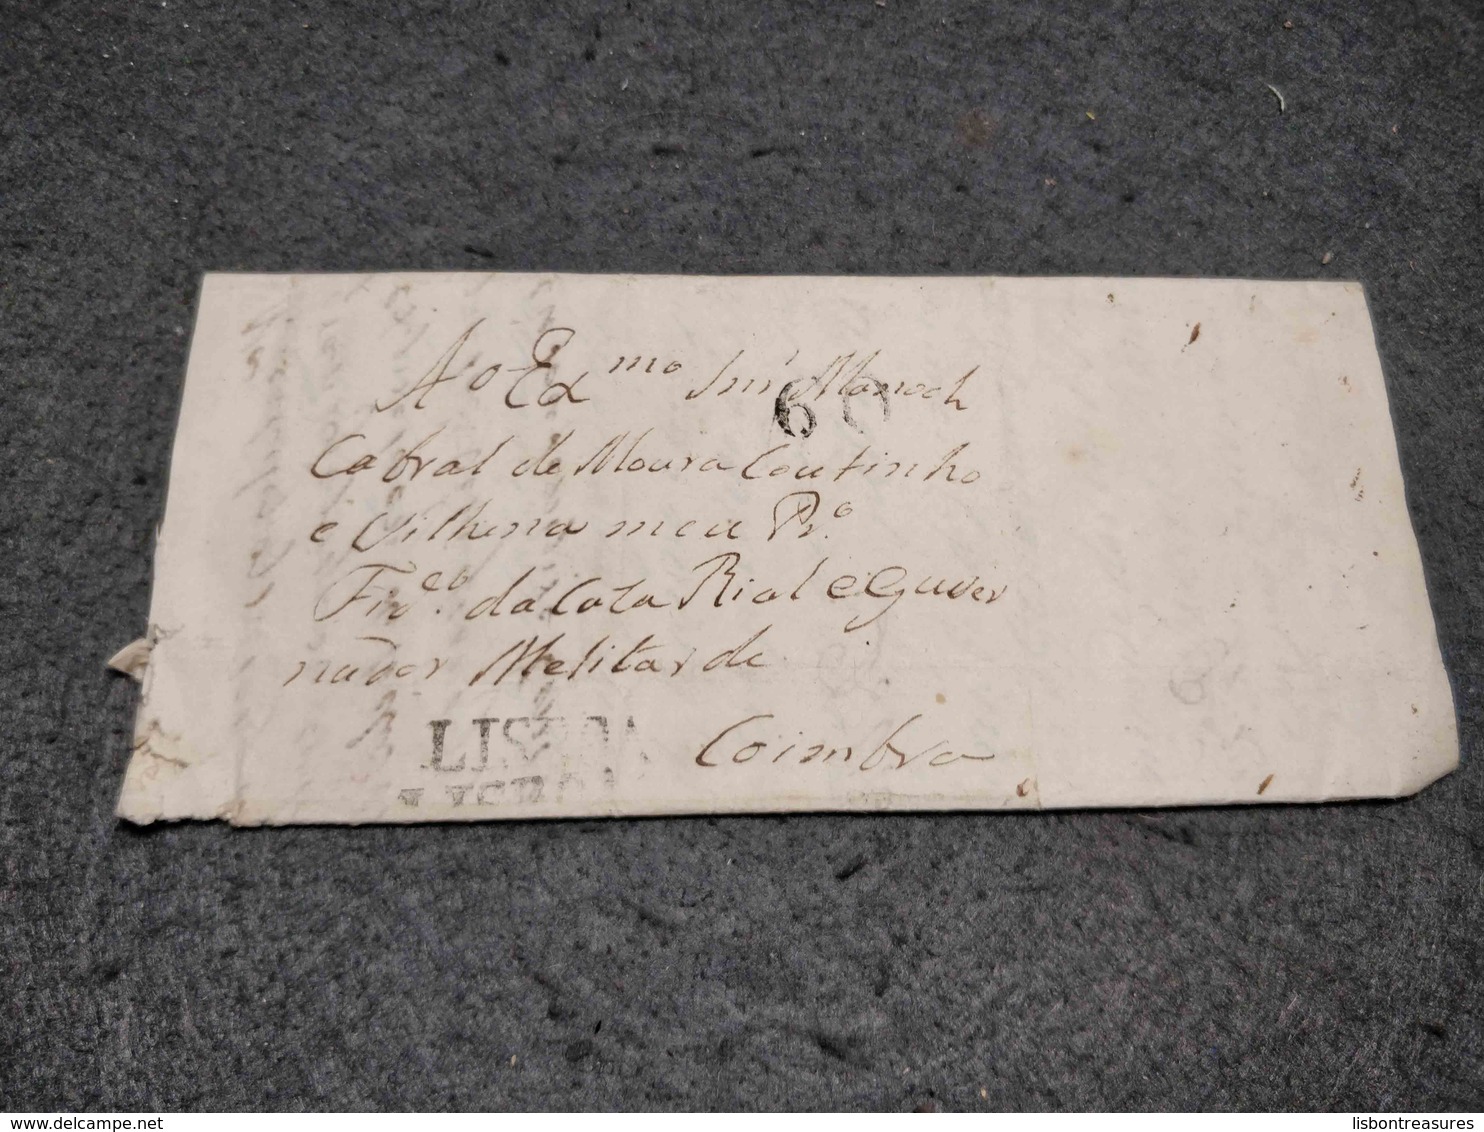 Ao Ex.mo Snr Manoel
60
Cabral de Moura Coutinho
e Vilhena meu Pr.o
da Caza Rial e Guver
nador Melitar de
LISBOA
Coimbra
LISBOA
delcampe.net
lisbontreasures